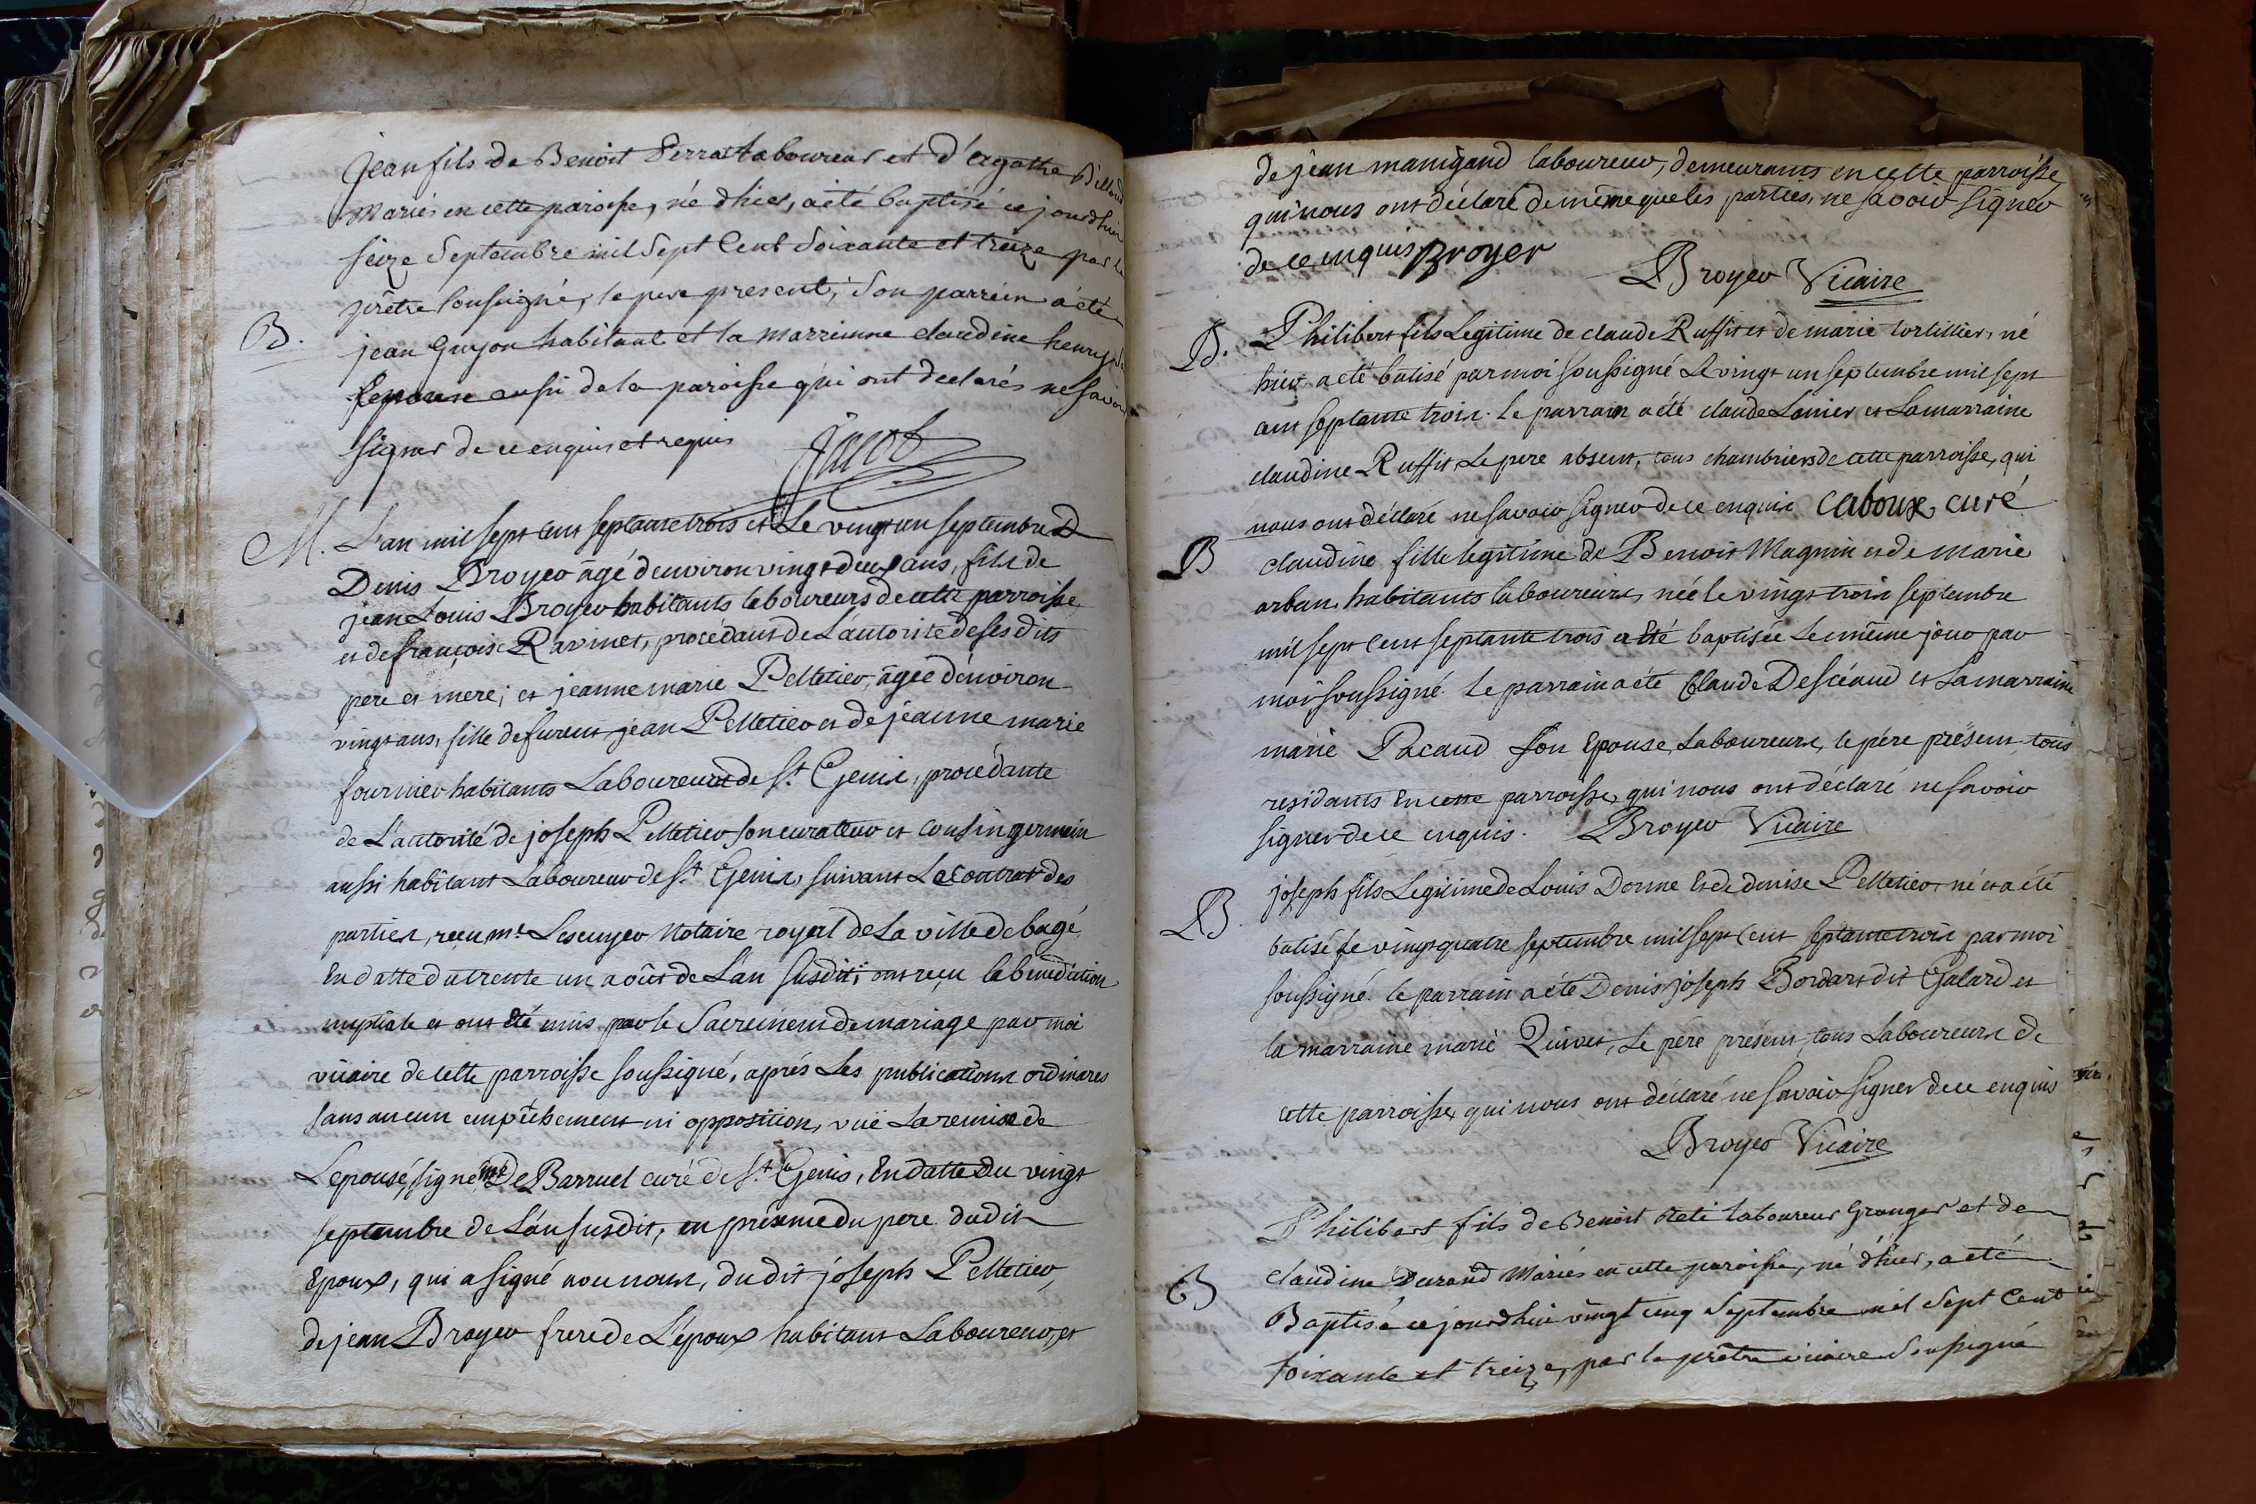 jean fils de Benoit Perrat laboureur et d'agathe Billoud
Mariés en cette paroisse, né d'hier, a été baptisé ce jourdhui
seize Septembre mil Sept Cent Soixante et treize par le
prêtre soussigné, le pere present, Son parrein a été
B. jean Guyon habitant et la marrienne claudine henry
Epouse aussi de la paroisse qui ont declarés ne savoir
signer de ce enquis et requis jacob
M. L'an mil sept cent septante trois et Le vingt un septembre
Denis Broyer âgé d'environ vingt deux ans, fils de
jean Louis Broyer habitants laboureurs de cette parroisse
et de françoise Ravinet, procédant de L'autorité de ses dits
pere et mere; et jeanne marie Pelletier, âgée d'environ
vingt ans, fille de furent jean Pelletier et de jeanne marie
fournier habitants Laboureurs de St. Genis, procédante
de L'autorité de joseph Pelletier son curateur et cousin germain
aussi habitant Laboureur de St. Genis, suivant Le contrat des
parties, reçu me. Lescuyer Notaire royal de La ville de bagé
En datte du trente un août de L'an susdit; ont reçu la benediction
nuptiale et ont été unis par le Sacrement de mariage par moi
vicaire de cette parroisse soussigné, après Les publications ordinaires
sans aucun empêchement ni opposition, vuë La remise de
L'epouse, signé mr. De Barruel curé de St. Genis, En datte du vingt
septembre de L'an susdit, en présence du pere dudit
Epoux, qui a signé avec nous, du dit joseph Pelletier,
de jean Broyer frere de L'époux habitant Laboureur, et
de jean manigand laboureur, demeurants en cette parroisse,
qui nous ont déclaré de même que les parties, ne savoir signer
de ce enquis Broyer
Broyer Vicaire
B. Philibert fils Legitime de claude Ruffit et de marie tortillier, né
hier a été batisé par moi soussigné Le vingt un septembre mil sept
cent septante trois. le parrain a été claude Lanier et La marraine
claudine Ruffit, Le pere absent, tous chambriers de cette parroisse, qui
nous ont déclaré ne savoir signer de ce enquis Caboux, curé
B claudine fille légitime de Benoit Magnin et de marie
arban, habitants laboureurs, née le vingt trois septembre
mil sept cent septante trois a été baptisée Le même jour par
moi soussigné. le parrain a été Claude Descéaud et La marraine
marie Pacaud son Epouse, Laboureurs, le père présent, tous
residants En cette parroisse, qui nous ont déclaré ne savoir
signer de ce enquis. Broyer Vicaire
B. joseph fils Legitime de Louis Donne Et de denise Pelletier, né et a été
batisé le vingt quatre septembre mil sept cent septante trois par moi
soussigné. le parrain a été Denis joseph Bordart dit Galard et
la marraine marie Quivet, Le père present, tous Laboureurs de
cette parroisse, qui nous ont déclaré ne savoir signer de ce enquis
Broyer Vicaire
Philibert fils de Benoit Reti laboureur Granger et de
claudine Durand Mariés en cette paroisse, né d'hier, a été
B Baptisé ce jourdhui vingt cinq Septembre mil Sept Cent
soixante et treize, par le prêtre vicaire Soussigné